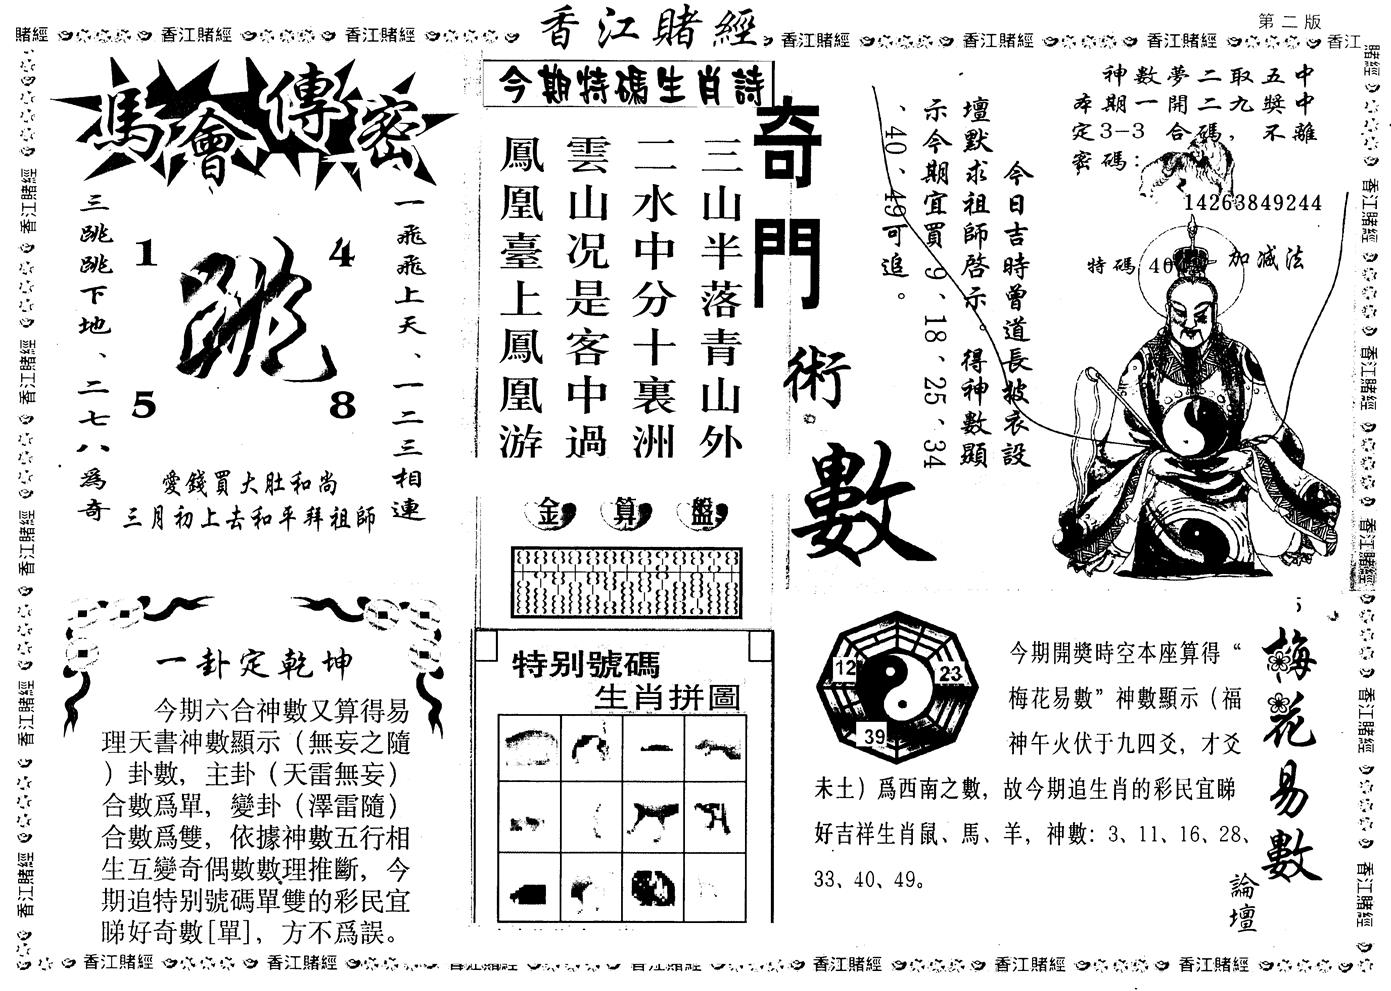 香江賭經
第二版
馬會傳密
一飛飛上天、一二三相連
三跳跳下地、二七八爲奇
1
4
跳
5
8
愛錢買大肚和尚
三月初上去和平拜祖師
一卦定乾坤
今期六合神數又算得易
理天書神數顯示（無妄之隨
）卦數，主卦（天雷無妄）
合數爲單，變卦（澤雷隨）
合數爲雙，依據神數五行相
生互變奇偶數數理推斷，今
期追特别號碼單雙的彩民宜
睇好奇數[單]，方不爲誤。
今期特碼生肖詩
三山半落青山外
二水中分十裏洲
雲山况是客中過
鳳凰臺上鳳凰游
金算盤
特别號碼
生肖拼圖
奇門術數
今日吉時曾道長披衣設
壇默求祖師啓示。得神數顯
示今期宜買9、18、25、34
、40、49可追。
神數夢二取五中
本期一開二九獎中
定3-3合碼，不離
密碼：
14263849244
特碼40
加减法
梅花易數
論壇
12
23
39
今期開獎時空本座算得“
梅花易數”神數顯示（福
神午火伏于九四爻，才爻
未土）爲西南之數，故今期追生肖的彩民宜睇
好吉祥生肖鼠、馬、羊，神數：3、11、16、28、
33、40、49。